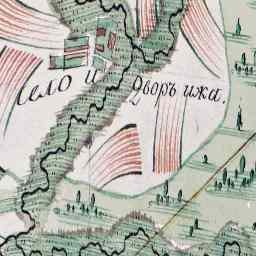 село и дворъ ижа.